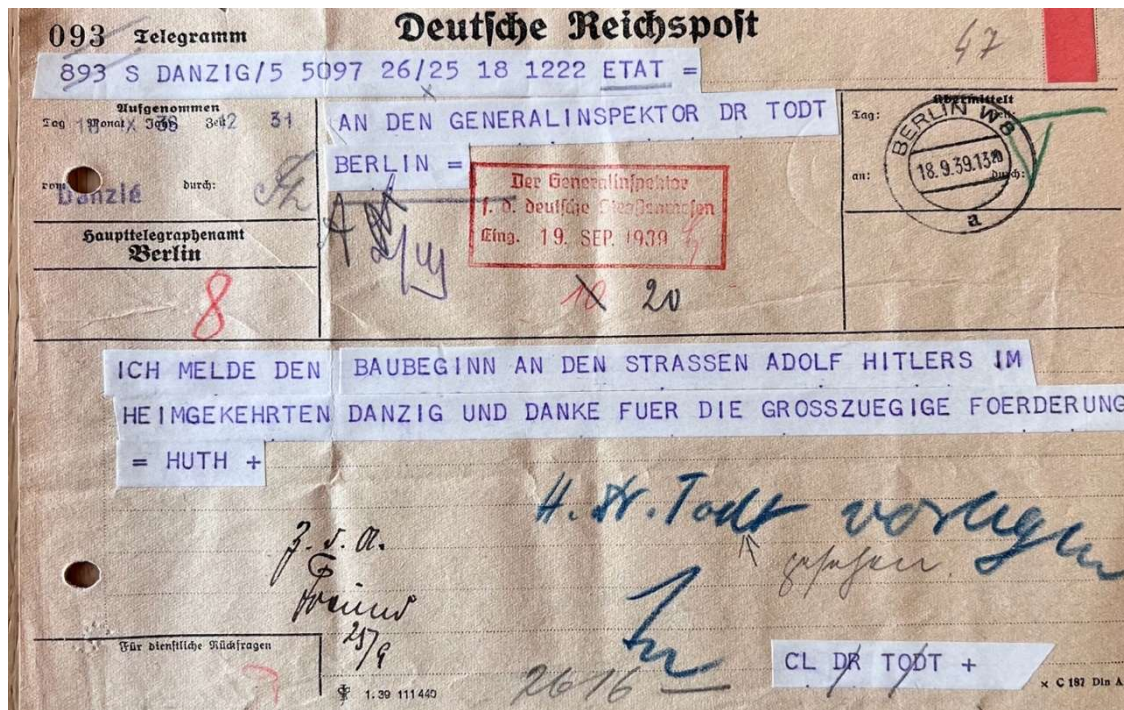 Deutsche Reichspost
093 Telegramm
47
893 S DANZIG/5 5097 26/25 18 1222 ETAT =
Aufgenommen
Tag Monat Jahr Zeit
31
von durch:
Danzig
Haupttelegraphenamt
Berlin
8
AN DEN GENERALINSPEKTOR DR TODT
BERLIN =
Der Generalinspektor
f. d. deutsche Straßenwesen
Eing. 19. SEP. 1939
10 20
Übermittelt
Tag:
an: durch:
BERLIN W8
18.9.39.13
a
ICH MELDE DEN BAUBEGINN AN DEN STRASSEN ADOLF HITLERS IM
HEIMGEKEHRTEN DANZIG UND DANKE FUER DIE GROSSZUEGIGE FOERDERUNG
= HUTH +
H. Dr. Todt vorlegen
gesehen
z. d. A.
25/9
Für dienstliche Rückfragen
2616
CL DR TODT +
1.39 111440
× C 187 Din A